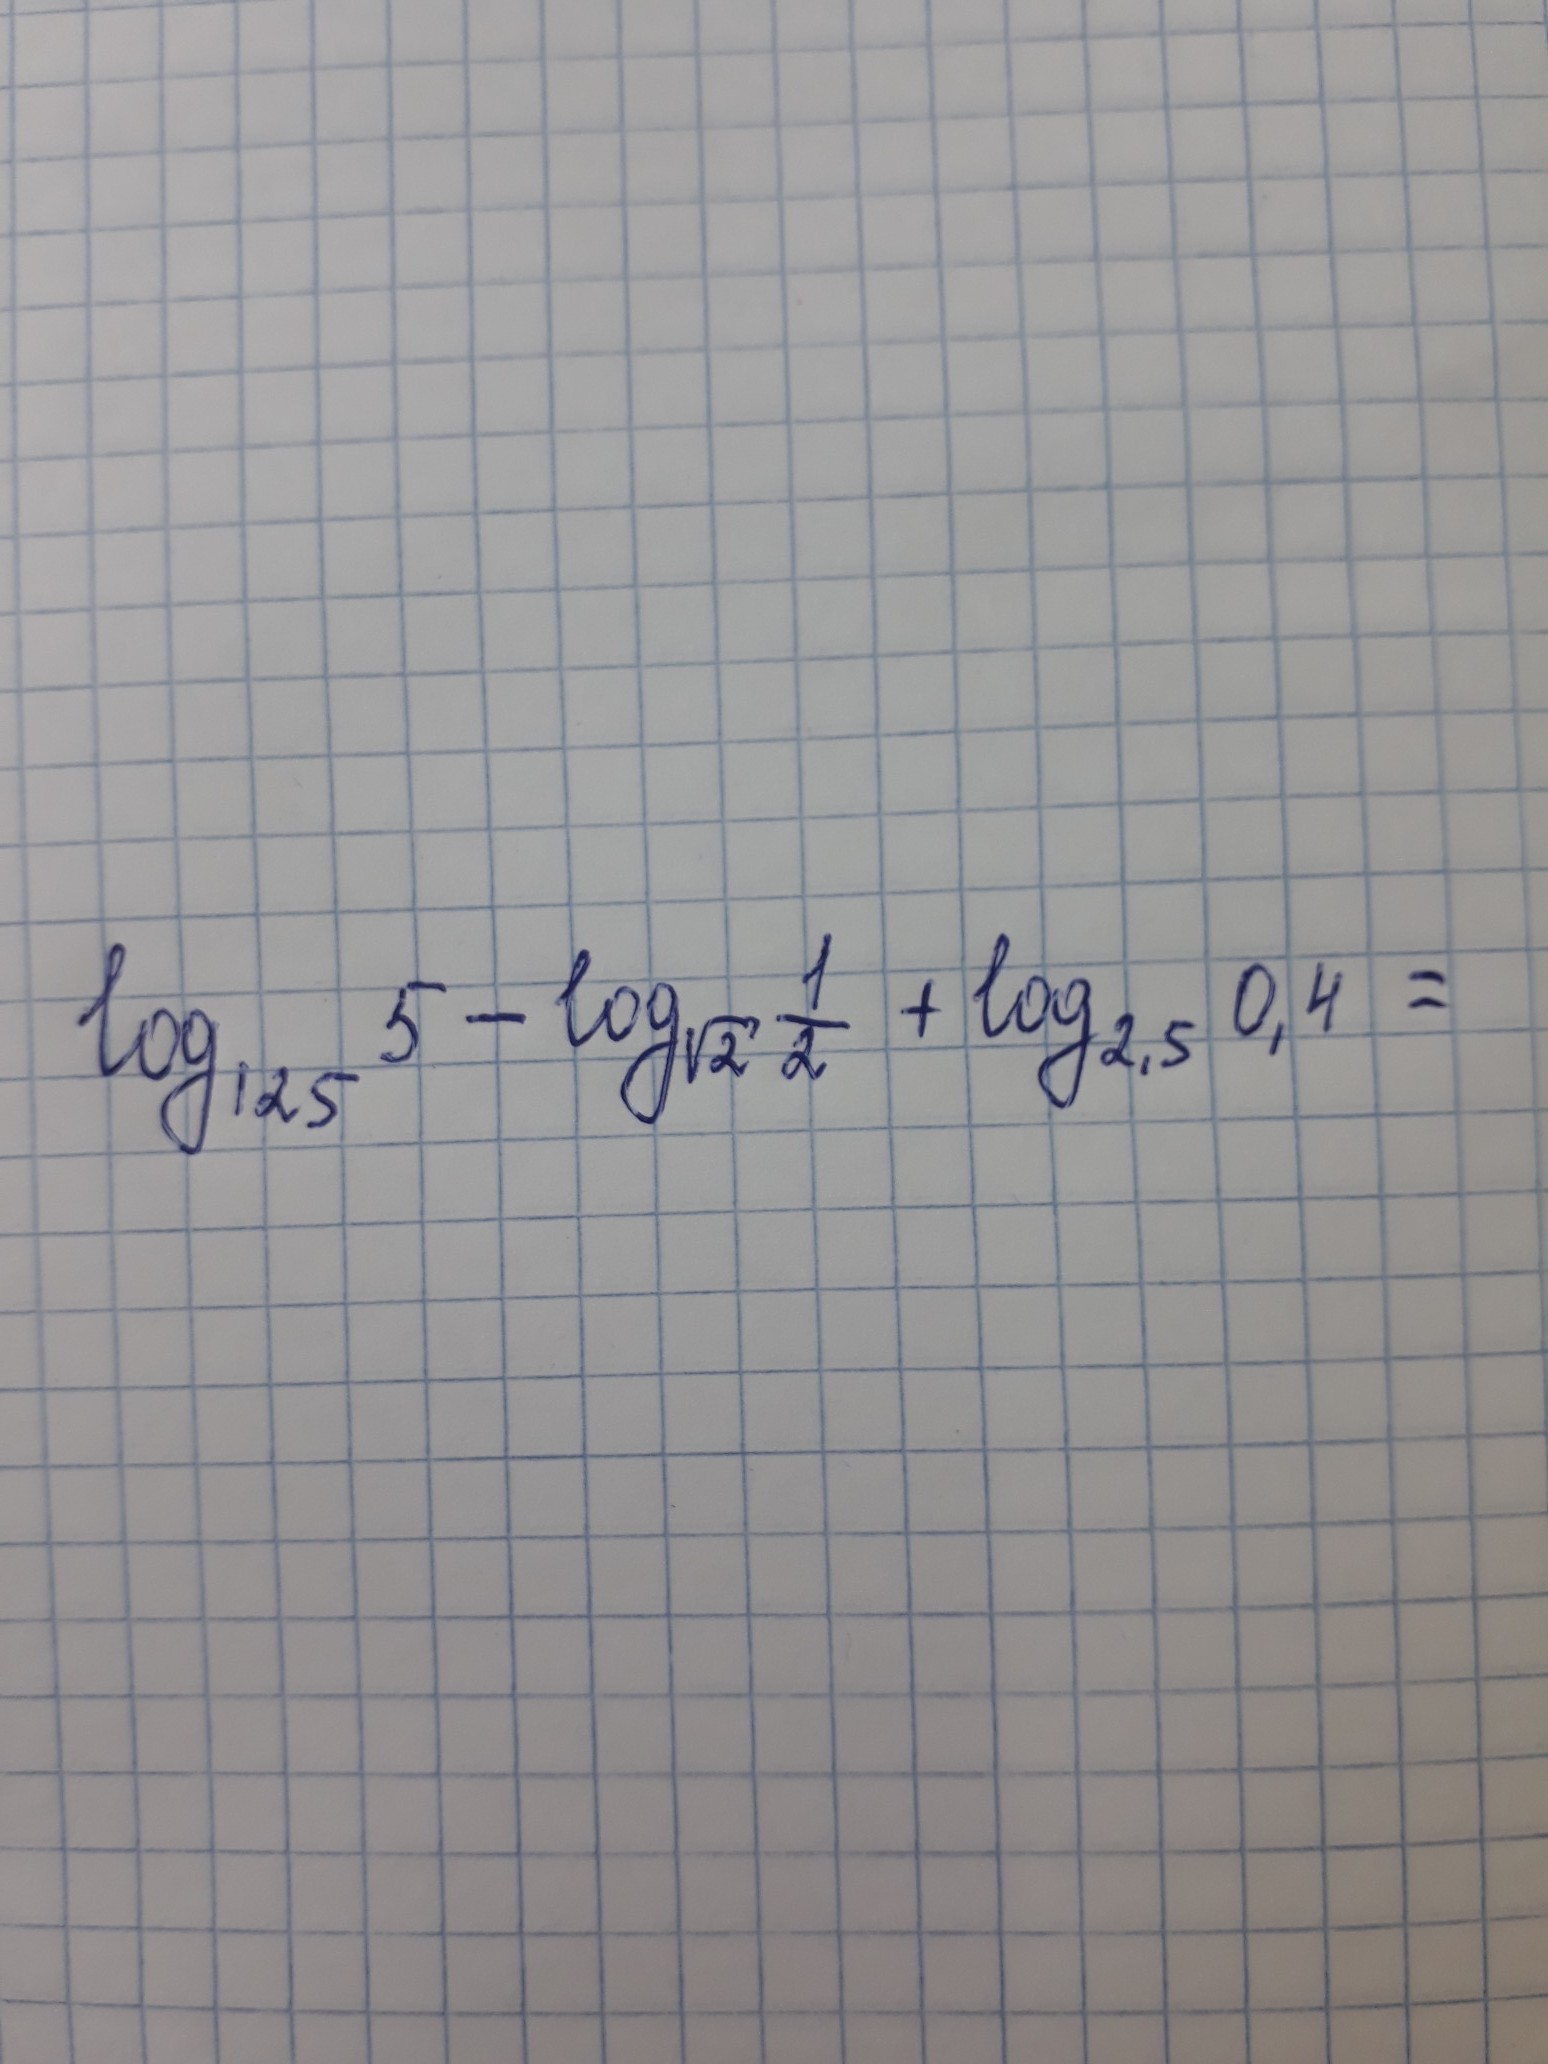 log₁₂₅ 5 − log_√2 1/2 + log₂,₅ 0,4 =